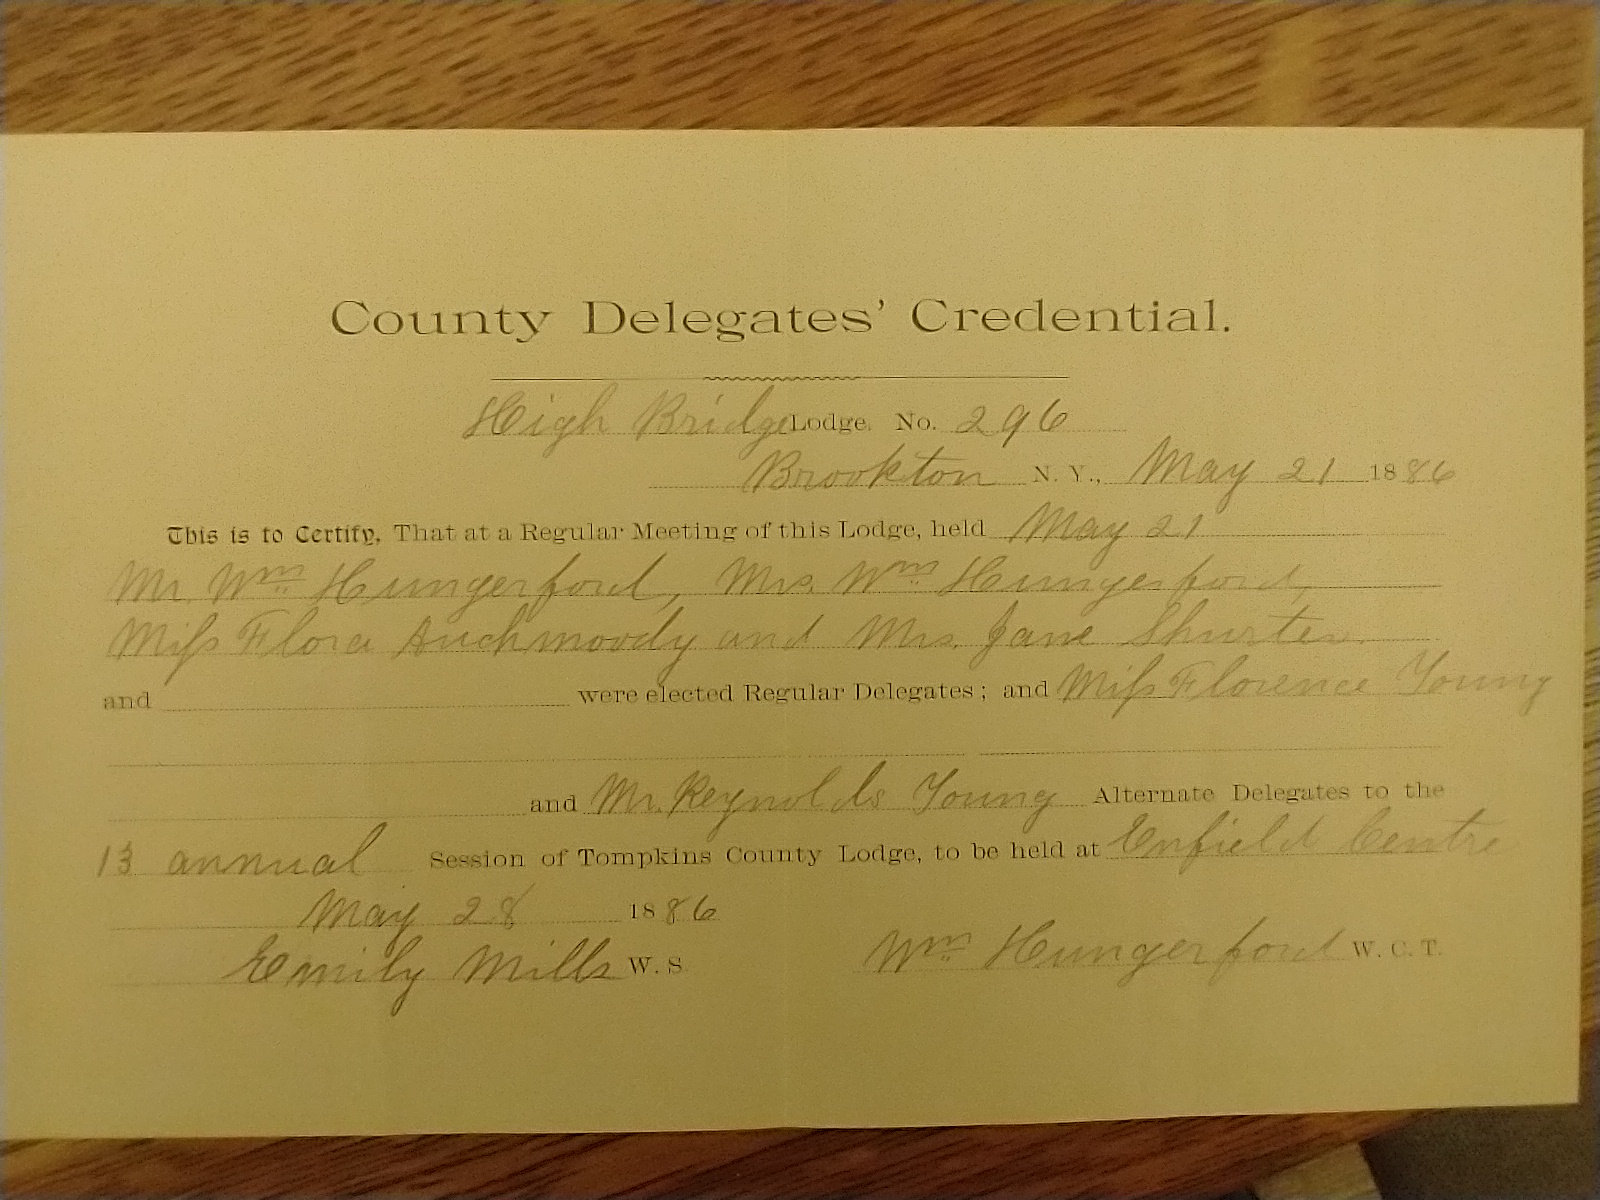 County Delegates' Credential.
High Bridge Lodge, No. 296
Brookton N. Y., May 21 1886
This is to Certify, That at a Regular Meeting of this Lodge, held May 21
Mr. Wm Hungerford, Mrs. Wm Hungerford,
Miss Flora Auchmoody and Mrs. Jane Shurter
and were elected Regular Delegates; and Miss Florence Young
and Mr. Reynolds Young Alternate Delegates to the
13 annual Session of Tompkins County Lodge, to be held at Enfield Centre
May 28 1886
Emily Mills W. S. Wm Hungerford W. C. T.